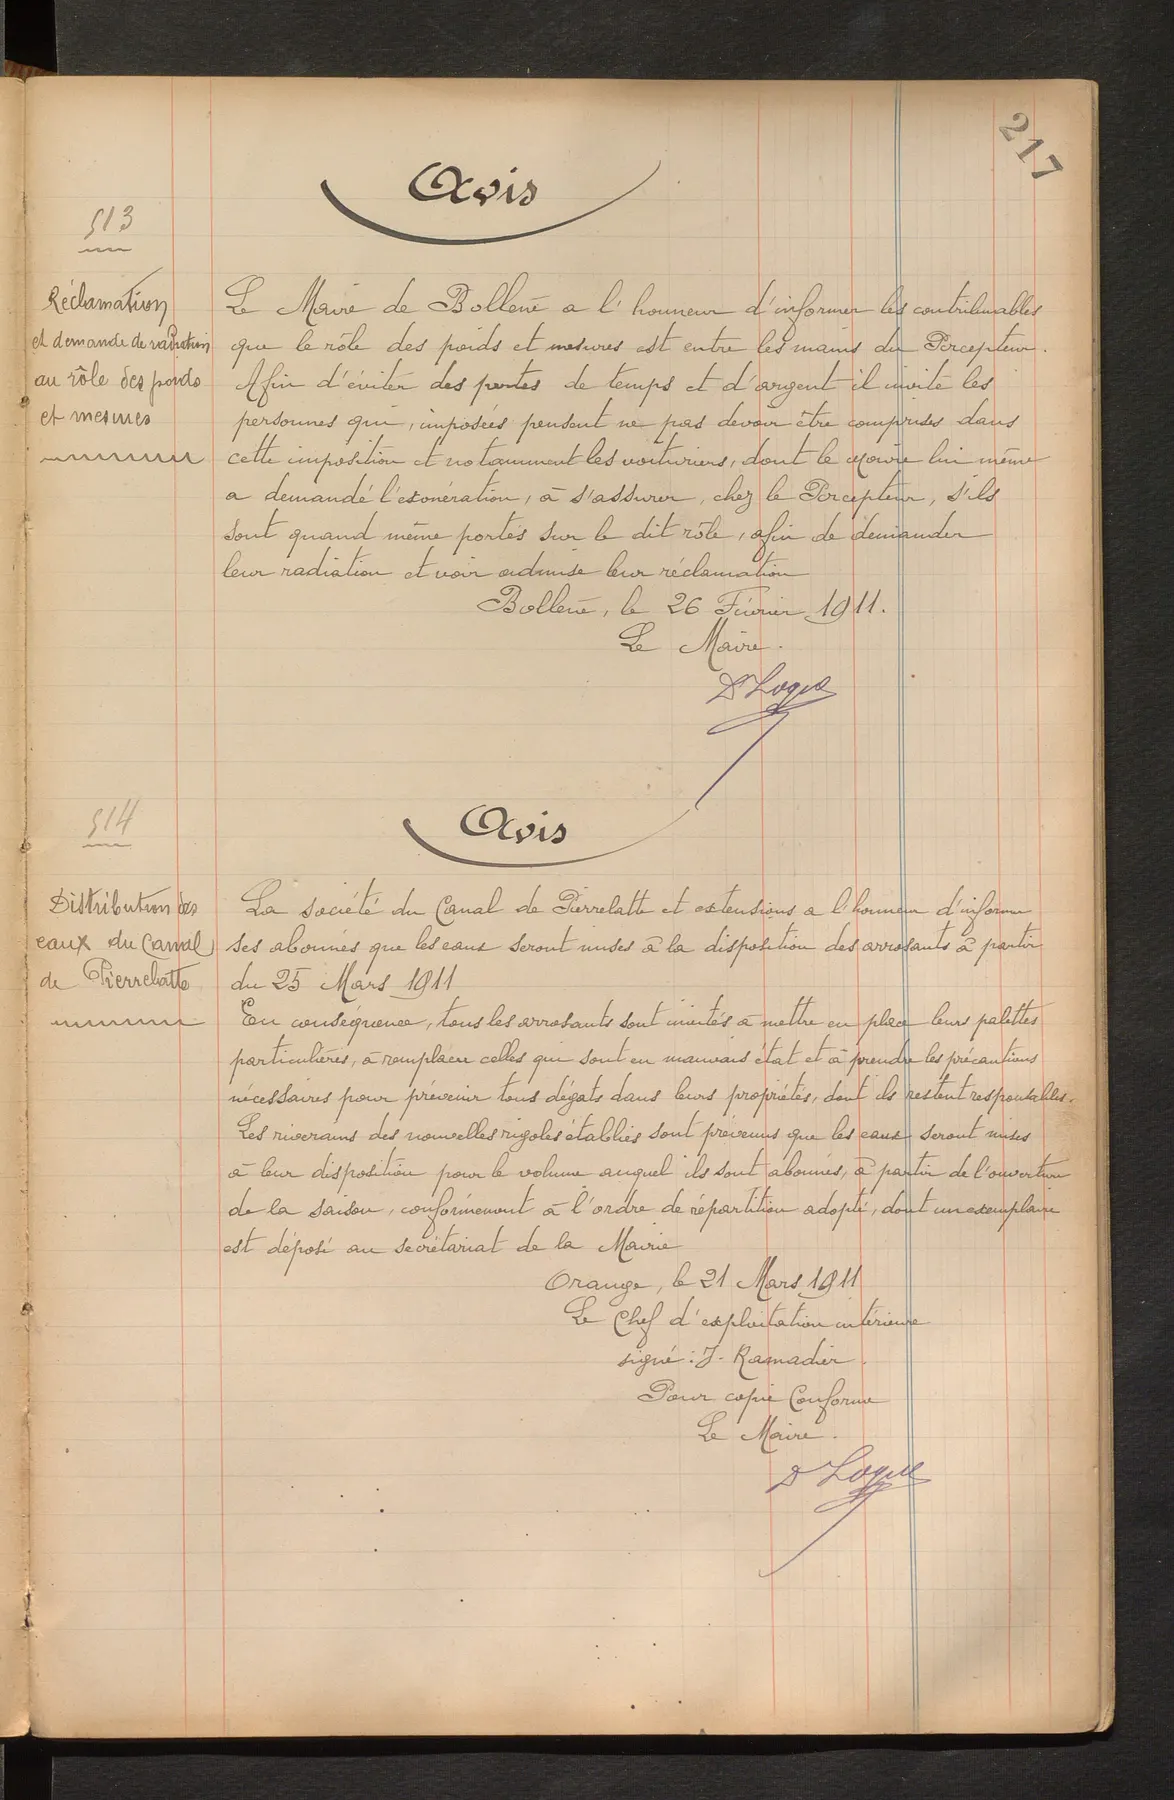 217
Avis
513
Réclamation
et demande de radiation
au rôle des poids
et mesures
Le Maire de Bollène a l'honneur d'informer les contribuables
que le rôle des poids et mesures est entre les mains du Percepteur.
Afin d'éviter des pertes de temps et d'argent il invite les
personnes qui, imposées pensent ne pas devoir être comprises dans
cette imposition et notamment les voituriers, dont le Maire lui même
a demandé l'exonération, à s'assurer, chez le Percepteur, s'ils
sont quand même portés sur le dit rôle, afin de demander
leur radiation et voir admise leur réclamation
Bollène, le 26 Février 1911.
Le Maire.
Dr Loque
514
Avis
Distribution des
eaux du Canal
de Pierrelatte
La société du Canal de Pierrelatte et extensions a l'honneur d'informer
ses abonnés que les eaux seront mises à la disposition des arrosants à partir
du 25 Mars 1911
En conséquence, tous les arrosants sont invités à mettre en place leurs palettes
particulières, à remplacer celles qui sont en mauvais état et à prendre les précautions
nécessaires pour prévenir tous dégats dans leurs propriétés, dont ils restent responsables.
Les riverains des nouvelles rigoles établies sont prévenus que les eaux seront mises
à leur disposition pour le volume auquel ils sont abonnés, à partir de l'ouverture
de la saison, conformément à l'ordre de répartition adopté, dont un exemplaire
est déposé au secrétariat de la Mairie
Orange, le 21 Mars 1911
Le Chef d'exploitation intérieure
signé : J. Ramadier.
Pour copie Conforme
Le Maire.
Dr Loque